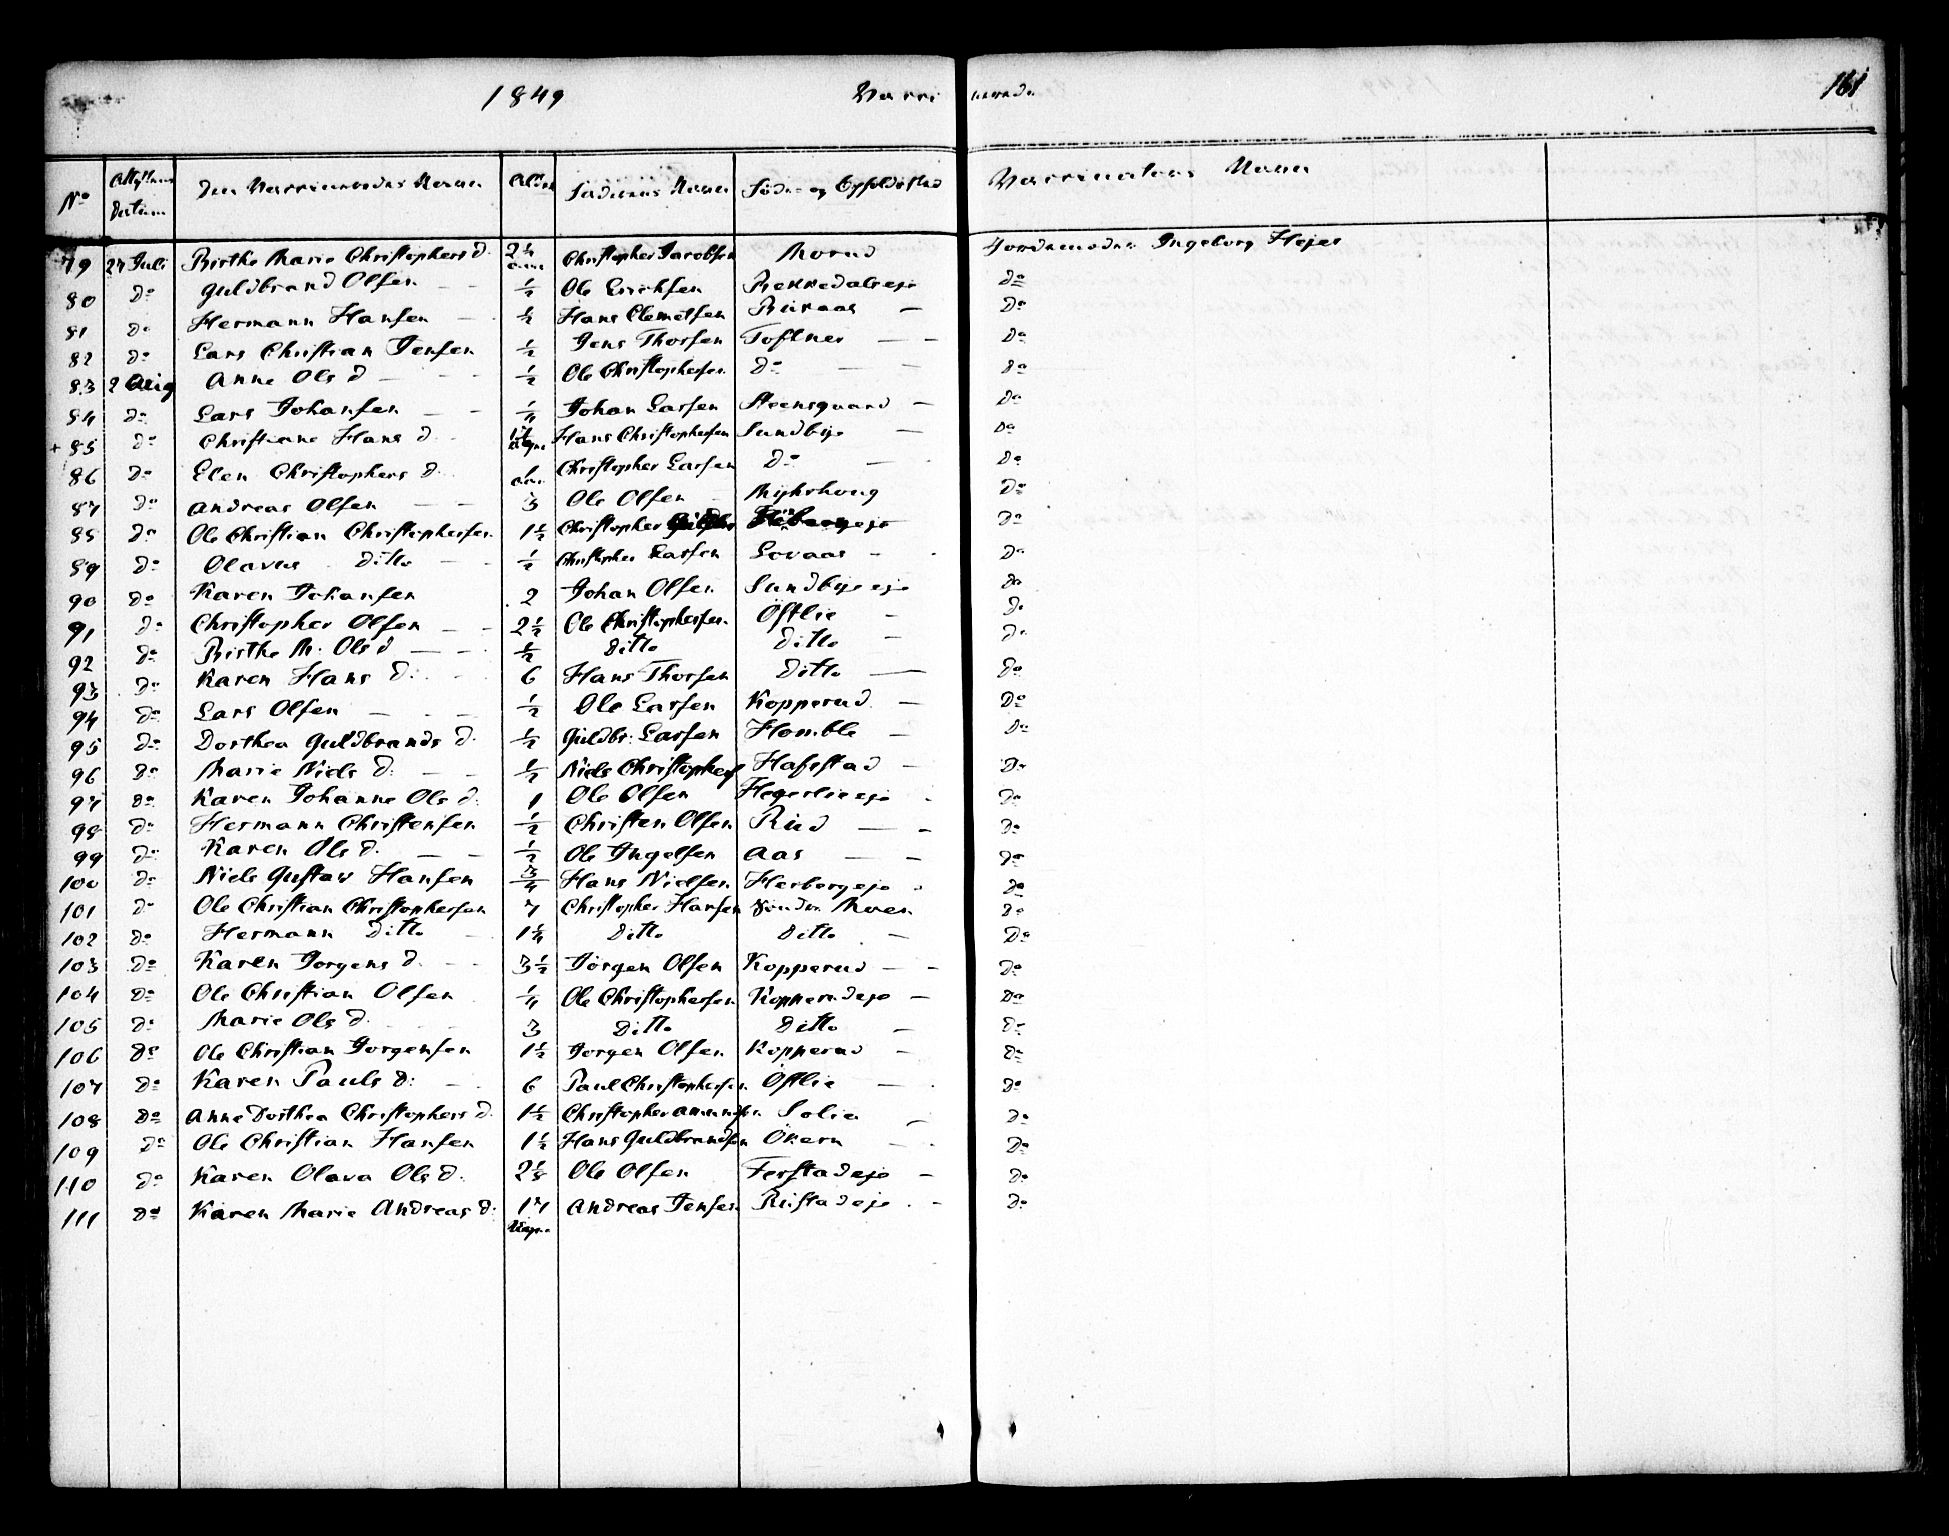 1849 Vaccinerede 161
No Attestens Datum Den Vaccineredes Navn Alder Faderens Navn Føde- og Opholdsted Vaccinateurs Navn
79 27 Juli Birthe Marie Christophers d. 2 1/4 aar Christopher Jacobsen Morud Jordemoder Ingeborg Hejer
80 Do Guldbrand Olsen — — 1/2 Ole Erichsen Bekkedalseje Do
81 Do Hermann Hansen — 1/2 Hans Clemetsen Buraas — Do
82 Do Lars Christian Jensen 1/2 Jens Thorsen Toftner — — Do
83 2 Aug Anne Ols d — — 1/2 Ole Christophersen Do — — Do
84 Do Lars Johansen — — 1/4 Johan Larsen Steensguard — Do
+ 85 Do Christiane Hans d. Hans Christophersen Sundbye — Do
86 Do Elen Christophers d. aar Christopher Larsen Do — Do
87 Do Andreas Olsen — — 3 Ole Olsen Myhrhoug Do
88 Do Ole Christian Christophersen 1 1/2 Christopher Do
89 Do Olavus Ditto — 1/2 Christopher Larsen Lovaas - Do
90 Do Karen Johansen 2 Johan Olsen Sundbyeeje Do
91 Do Christopher Olsen — - 2 1/2 Ole Christophersen Østlie - Do
92 Do Birthe M: Ols d — — 1/2 Ditto Ditto — Do
93 Do Karen Hans d: 6 Hans Thorsen Ditto — Do
94 Do Lars Olsen — — 1/2 Ole Larsen Kopperud — Do
95 Do Dorthea Guldbrands d. 1/2 Guldbr: Larsen Homble — Do
96 Do Marie Niels d: — — 1/2 Niels Christophers Hafstad — Do
97 Do Karen Johanne Ols d. 1 Ole Olsen Hegerlieeje Do
98 Do Hermann Christensen 1/2 Christen Olsen Rud — - Do
99 Do Karen Ols d. — — 1/2 Ole Ingelsen Aas — — Do
100 Do Niels Gustav Hansen 3/4 Hans Nielsen Herbergeje Do
101 Do Ole Christian Christophersen 7 Christopher Hansen Søndre Moen Do
102 Do Hermann Ditto 1 1/4 Ditto Ditto — Do
103 Do Karen Jorgens d. 3 1/2 Jørgen Olsen Kopperud — - Do
104 Do Ole Christian Olsen 1/4 Ole Christophersen Kopperudeje — Do
105 Do Marie Ols d. 3 Ditto Ditto — Do
106 Do Ole Christian Jorgensen 1 1/2 Jorgen Olsen Kopperud — Do
107 Do Karen Pauls d: — 6 Paul Christophersen Østlie — Do
108 Do Anne Dorthea Christophers d. 1 1/2 Christopher Amundsen Solie — Do
109 Do Ole Christian Hansen 1 1/2 Hans Guldbrandsen Økern — Do
110 Do Karen Olava Ols d. 2 1/2 Ole Olsen Ferstadeje — Do
111 Do Karen Marie Andreas d: 17 Uger Andreas Jensen Rustadeje - Do